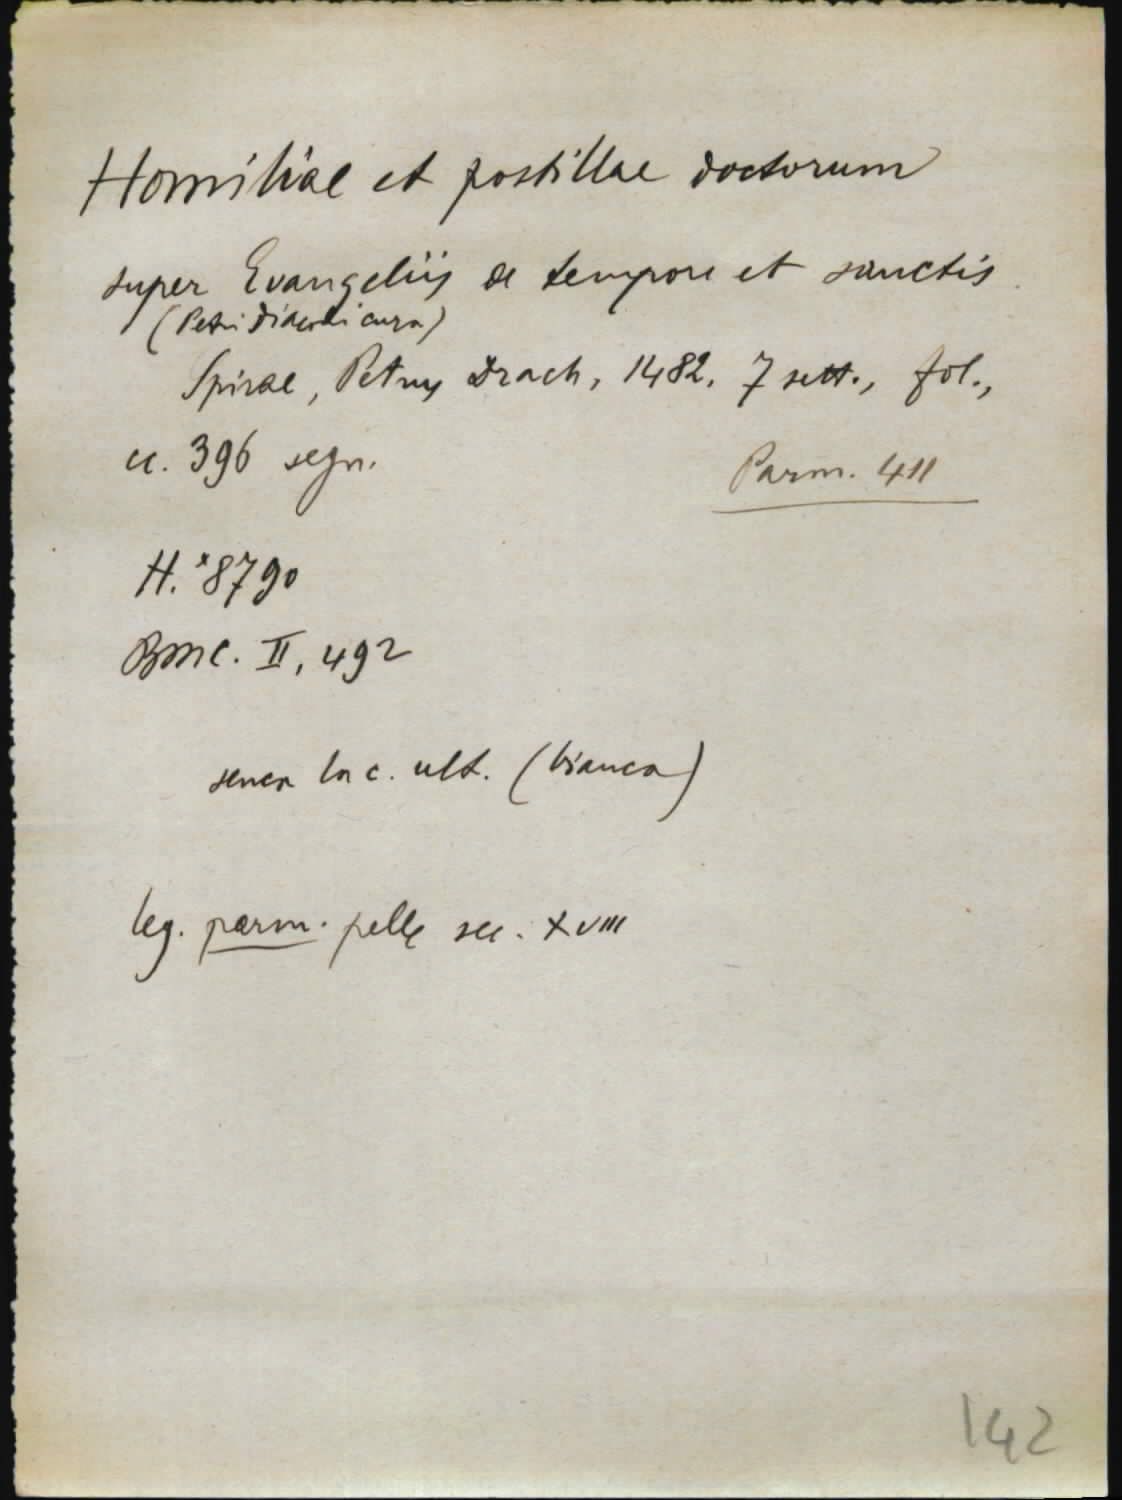 Homiliae et postillae doctorum
super Evangeliis de tempore et sanctis
(Petri diaconi cura)
Spirae, Petrus Drach, 1482, 7 sett., fol.,
cc. 396 segn.
Parm. 411
H. *8790
BMC. II, 492
senza la c. ult. (bianca)
leg. parm. pelle sec. XVIII
142